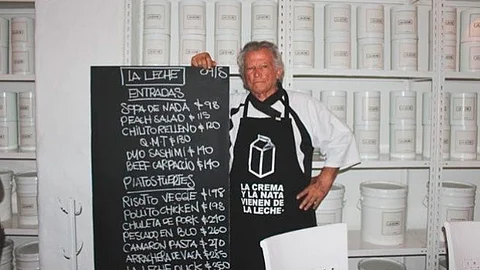 LA LECHE
ENTRADAS
SOPA DE NADA $98
PEACH SALAD $115
CHILITO RELLENO $120
Q.M.T $130
DUO SASHIMI $140
BEEF CARPACCIO $140
PLATOS FUERTES
RISOTTO VEGGIE $198
POLLITO CHICKEN $198
CHULETA DE PORK $240
PESCADO EN BLU $260
CAMARON PASTA $270
ARRACHERA DE VACA $285
LA LECHE DUCK $350
LA CREMA
Y LA NATA
VIENEN DE
LA LECHE.